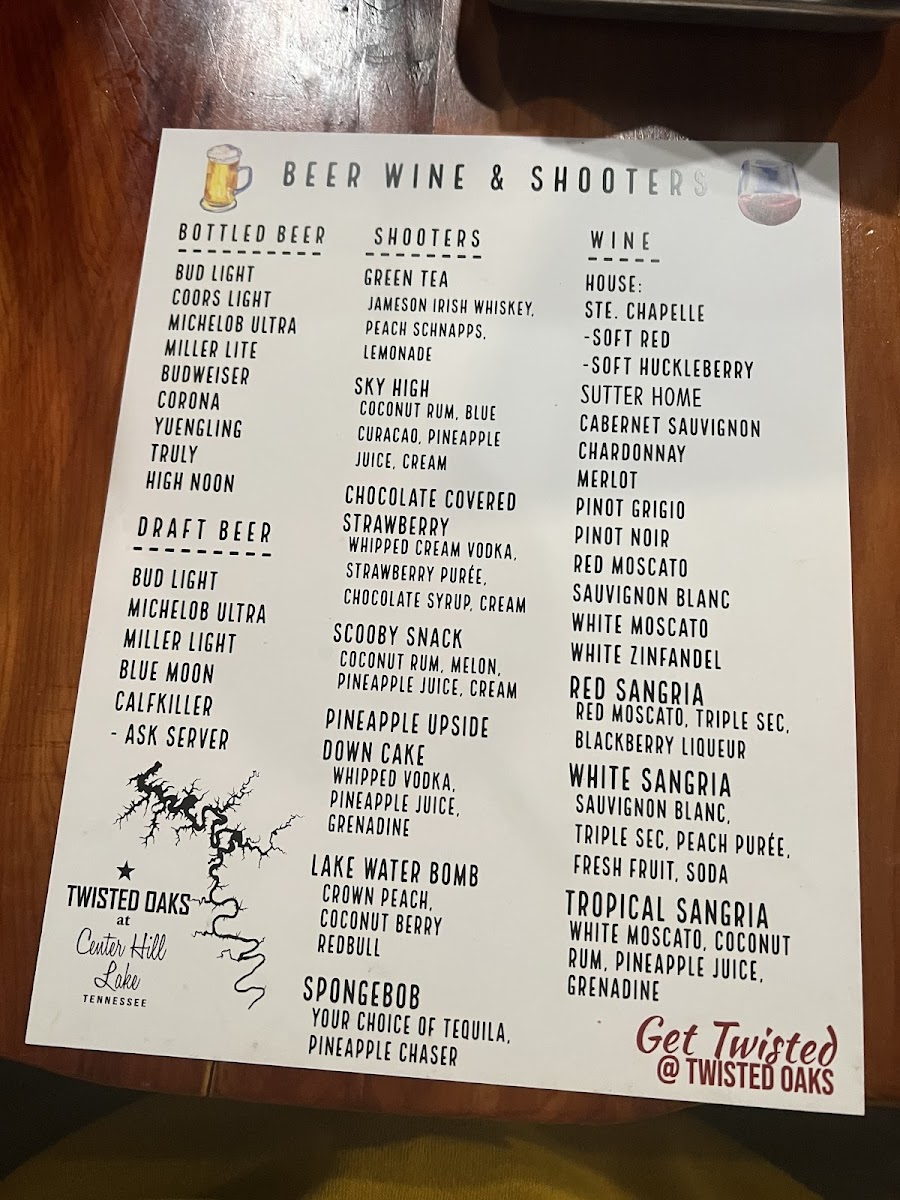 BEER WINE & SHOOTERS
BOTTLED BEER
BUD LIGHT
COORS LIGHT
MICHELOB ULTRA
MILLER LITE
BUDWEISER
CORONA
YUENGLING
TRULY
HIGH NOON
DRAFT BEER
BUD LIGHT
MICHELOB ULTRA
MILLER LIGHT
BLUE MOON
CALFKILLER
- ASK SERVER
TWISTED OAKS
at
Center Hill
Lake
TENNESSEE
SHOOTERS
GREEN TEA
JAMESON IRISH WHISKEY,
PEACH SCHNAPPS,
LEMONADE
SKY HIGH
COCONUT RUM, BLUE
CURACAO, PINEAPPLE
JUICE, CREAM
CHOCOLATE COVERED
STRAWBERRY
WHIPPED CREAM VODKA,
STRAWBERRY PURÉE,
CHOCOLATE SYRUP, CREAM
SCOOBY SNACK
COCONUT RUM, MELON,
PINEAPPLE JUICE, CREAM
PINEAPPLE UPSIDE
DOWN CAKE
WHIPPED VODKA,
PINEAPPLE JUICE,
GRENADINE
LAKE WATER BOMB
CROWN PEACH,
COCONUT BERRY
REDBULL
SPONGEBOB
YOUR CHOICE OF TEQUILA,
PINEAPPLE CHASER
WINE
HOUSE:
STE. CHAPELLE
-SOFT RED
-SOFT HUCKLEBERRY
SUTTER HOME
CABERNET SAUVIGNON
CHARDONNAY
MERLOT
PINOT GRIGIO
PINOT NOIR
RED MOSCATO
SAUVIGNON BLANC
WHITE MOSCATO
WHITE ZINFANDEL
RED SANGRIA
RED MOSCATO, TRIPLE SEC,
BLACKBERRY LIQUEUR
WHITE SANGRIA
SAUVIGNON BLANC,
TRIPLE SEC, PEACH PURÉE,
FRESH FRUIT, SODA
TROPICAL SANGRIA
WHITE MOSCATO, COCONUT
RUM, PINEAPPLE JUICE,
GRENADINE
Get Twisted
@ TWISTED OAKS